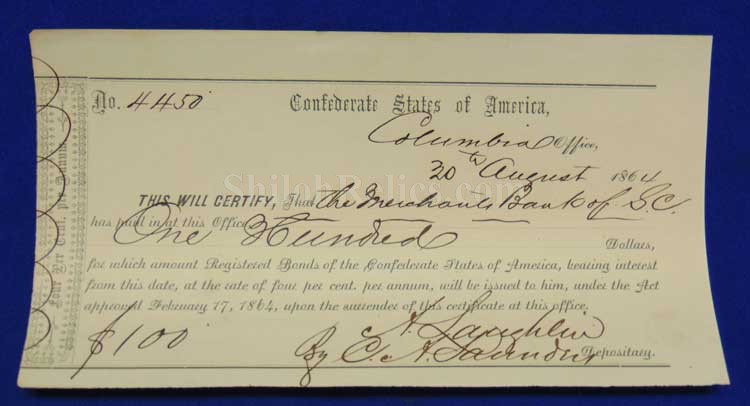 No. 4450 Confederate States of America,
Columbia Office,
20th August 1864
THIS WILL CERTIFY, That the Merchants Bank of S.C.
has paid in at this Office
One Hundred Dollars,
for which amount Registered Bonds of the Confederate States of America, bearing interest
from this date, at the rate of four per cent. per annum, will be issued to him, under the Act
approved February 17, 1864, upon the surrender of this certificate at this office.
$100 A. Laughlin
By C. A. Saunders Depositary.
Four Per Cent. Per Annum.
ShilohRelics.com